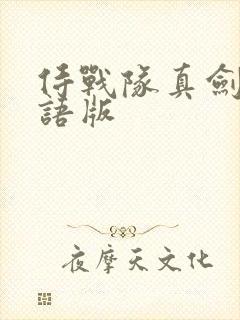 侍戰隊真劍
語版
夜摩天文化